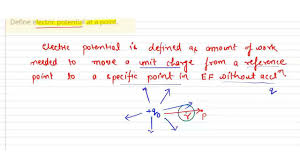 Define electric potential at a point.
Electric potential is defined as amount of work
needed to move a unit charge from a reference
point to a specific point in EF without accln.
q
+q
P